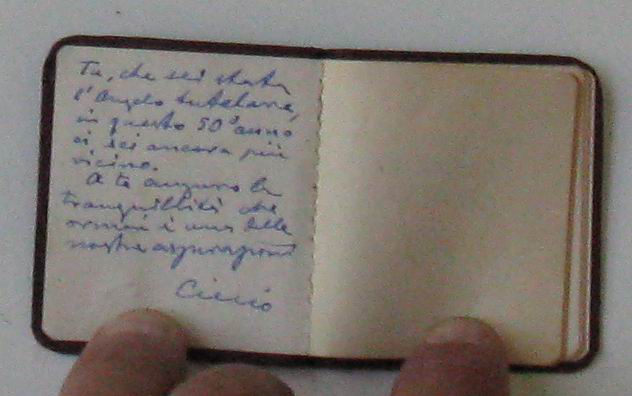 Tu, che sei stata
l'Angelo tutelare,
in questo 50° anno
ci sei ancora più
vicino.
A te auguro la
tranquillità che
ormai è una delle
nostre aspirazioni